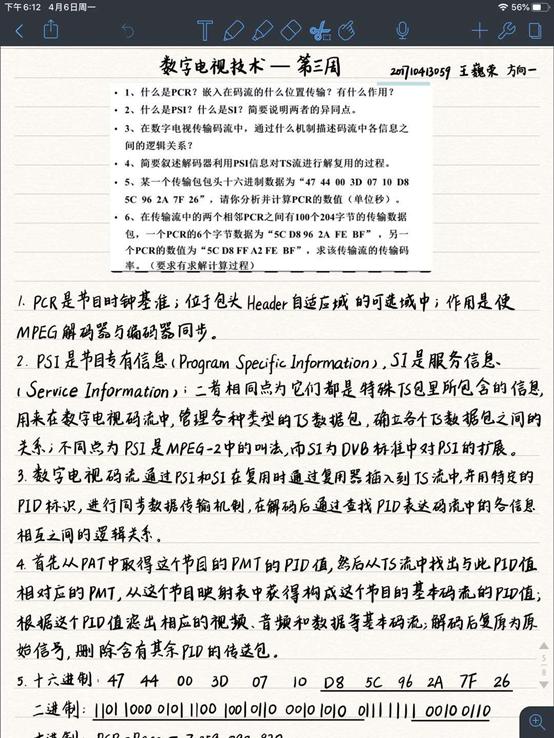 下午6:12 4月6日周一
56%
数字电视技术 — 第三周
201710413059 王巍荣 方向一
• 1、什么是PCR？嵌入在码流的什么位置传输？有什么作用？
• 2、什么是PSI？什么是SI？简要说明两者的异同点。
• 3、在数字电视传输码流中，通过什么机制描述码流中各信息之
间的逻辑关系？
• 4、简要叙述解码器利用PSI信息对TS流进行解复用的过程。
• 5、某一个传输包包头十六进制数据为“47 44 00 3D 07 10 D8
5C 96 2A 7F 26”，请你分析并计算PCR的数值（单位秒）。
• 6、在传输流中的两个相邻PCR之间有100个204字节的传输数据
包，一个PCR的6个字节数据为“5C D8 96 2A FE BF”，另一
个PCR的数值为“5C D8 FF A2 FE BF”，求该传输流的传输码
率。（要求有求解计算过程）
1. PCR是节目时钟基准；位于包头Header自适应域的可选域中；作用是使
MPEG解码器与编码器同步。
2. PSI是节目专有信息(Program Specific Information), SI是服务信息
(Service Information)；二者相同点为它们都是特殊TS包里所包含的信息,
用来在数字电视码流中,管理各种类型的TS数据包,确立各个TS数据包之间的
关系；不同点为PSI是MPEG-2中的叫法,而SI为DVB标准中对PSI的扩展。
3. 数字电视码流通过PSI和SI在复用时通过复用器插入到TS流中,并用特定的
PID标识，进行同步数据传输机制,在解码后通过查找PID表达码流中的各信息
相互之间的逻辑关系。
4. 首先从PAT中取得这个节目的PMT的PID值,然后从TS流中找出与此PID值
相对应的PMT，从这个节目映射表中获得构成这个节目的基本码流的PID值;
根据这个PID值滤出相应的视频、音频和数据等基本码流;解码后复原为原
始信号,删除含有其余PID的传送包。
5. 十六进制: 47 44 00 3D 07 10 D8 5C 96 2A 7F 26
二进制: 1101 1000 0101 1100 1001 0110 0010 1010 0 111111 1 0010 0110